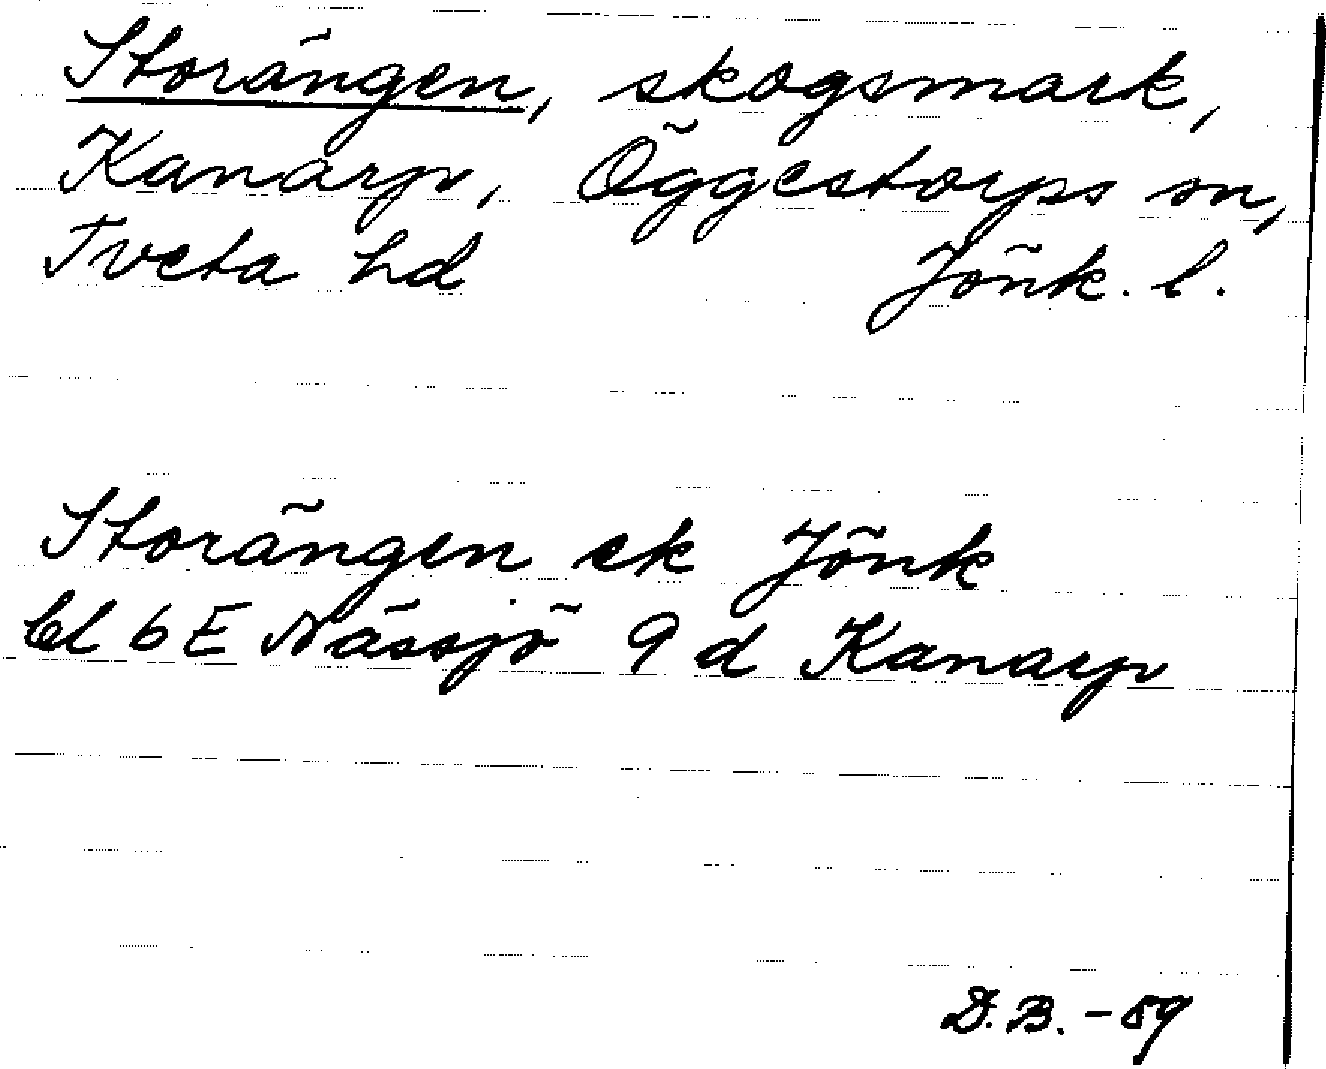 Storängen, skogsmark,
Kanarp, Öggestorps sn,
Tveta hd Jönk. l.
Storängen ek Jönk
bl 6E Nässjö 9 d Kanarp
D.B. - 89